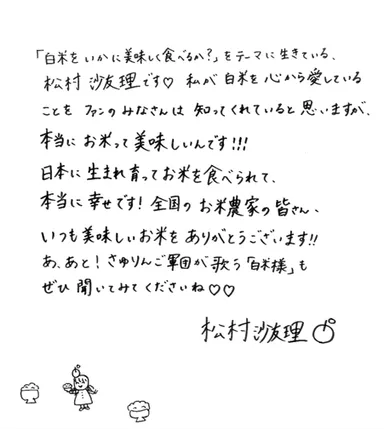 「白米をいかに美味しく食べるか?」をテーマに生きている、
松村沙友理です♡ 私が白米を心から愛している
ことをファンのみなさんは知ってくれていると思いますが、
本当にお米って美味しいんです!!!
日本に生まれ育ってお米を食べられて、
本当に幸せです! 全国のお米農家の皆さん、
いつも美味しいお米をありがとうございます!!
あ、あと! さゆりんご軍団が歌う「白米様」も
ぜひ聞いてみてくださいね♡♡
松村沙友理